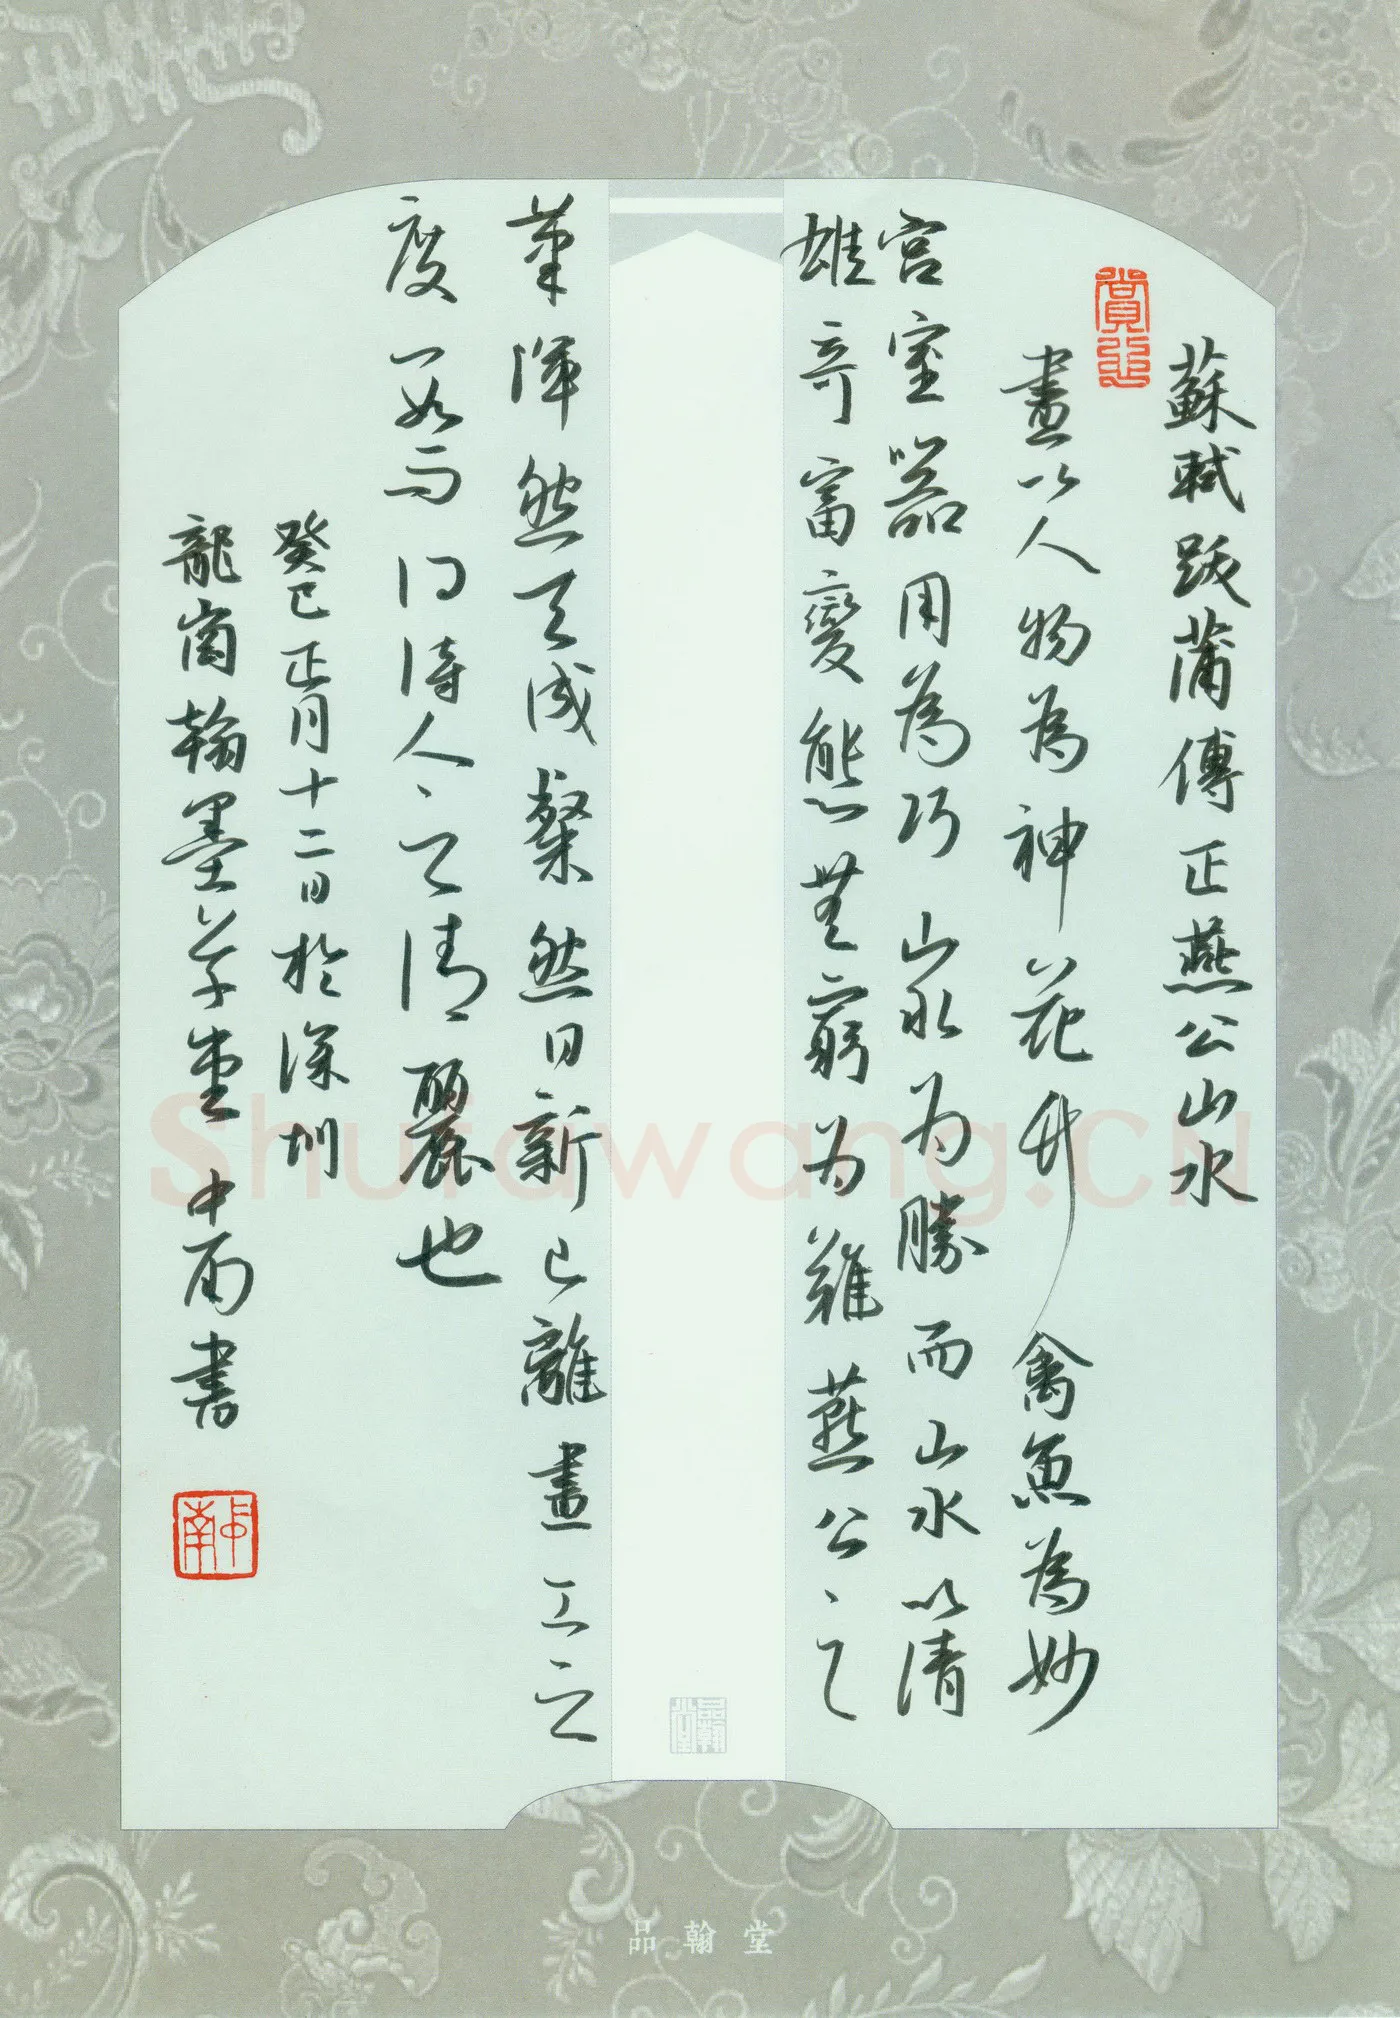 蘇軾跋蒲傅正燕公山水
畫以人物為神花竹禽魚為妙
宮室器用為巧山水为勝而山水以清
雄奇富變態無窮为難燕公之
筆渾然天成粲然日新已離畫工之
度數而得詩人之清麗也
癸巳正月十二日於深圳
龍崗翰墨草堂中南書
賞
中南
品翰堂
品翰堂
Shufawang.CN